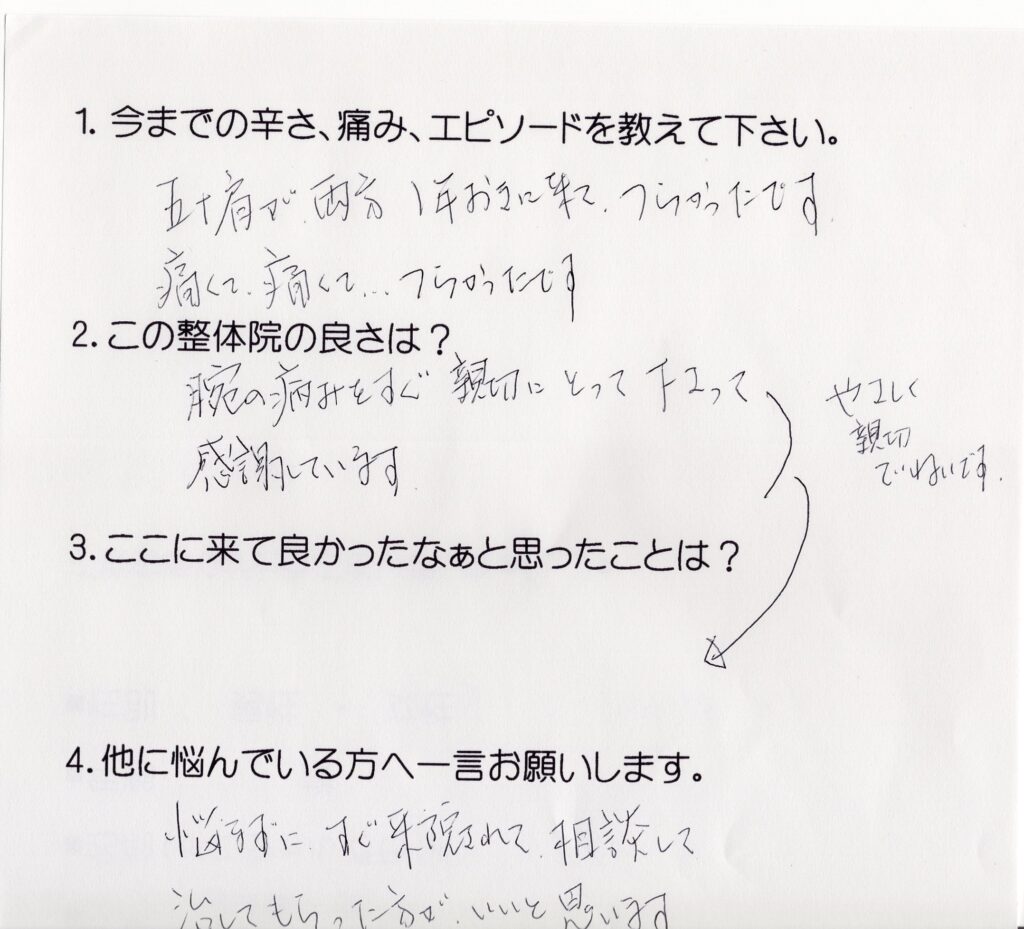 1. 今までの辛さ、痛み、エピソードを教えて下さい。
五十肩が、両方 1年おきに来て、つらかったです。
痛くて、痛くて... つらかったです
2. この整体院の良さは？
腕の痛みをすぐ 親切に とって 下さって
感謝しています。
やさしく
親切
ていねいです。
3. ここに来て良かったなぁと思ったことは？
4. 他に悩んでいる方へ一言お願いします。
悩まずに、すぐ来院されて、相談して
治してもらった方が、いいと思います